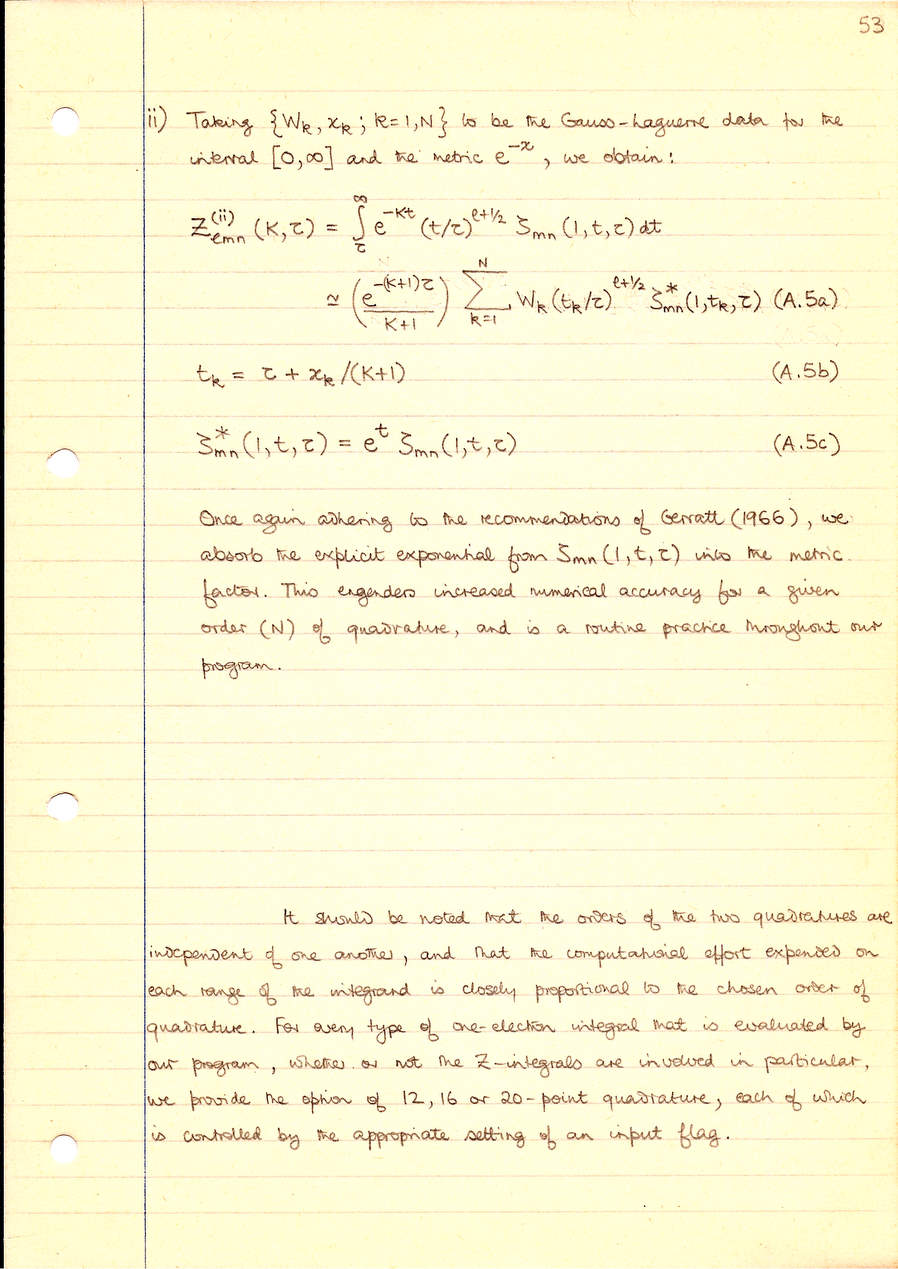 53
ii) Taking {Wk, xk ; k=1,N} to be the Gauss-Laguerre data for the
interval [0,∞] and the metric e^-x, we obtain:
Z^(ii)_ℓmn (K,τ) = ∫_τ^∞ e^-Kt (t/τ)^ℓ+1/2 ζmn (1,t,τ) dt
≃ (e^-(K+1)τ / K+1) Σ_k=1^N Wk (tk/τ)^ℓ+1/2 ζ*mn (1,tk,τ) (A.5a)
tk = τ + xk/(K+1) (A.5b)
ζ*mn (1,t,τ) = e^t ζmn (1,t,τ) (A.5c)
Once again adhering to the recommendations of Gerratt (1966), we
absorb the explicit exponential from ζmn (1,t,τ) into the metric
factor. This engenders increased numerical accuracy for a given
order (N) of quadrature, and is a routine practice throughout our
program.
It should be noted that the orders of the two quadratures are
independent of one another, and that the computational effort expended on
each range of the integrand is closely proportional to the chosen order of
quadrature. For every type of one-electron integral that is evaluated by
our program, whether or not the Z-integrals are involved in particular,
we provide the option of 12, 16 or 20-point quadrature, each of which
is controlled by the appropriate setting of an input flag.